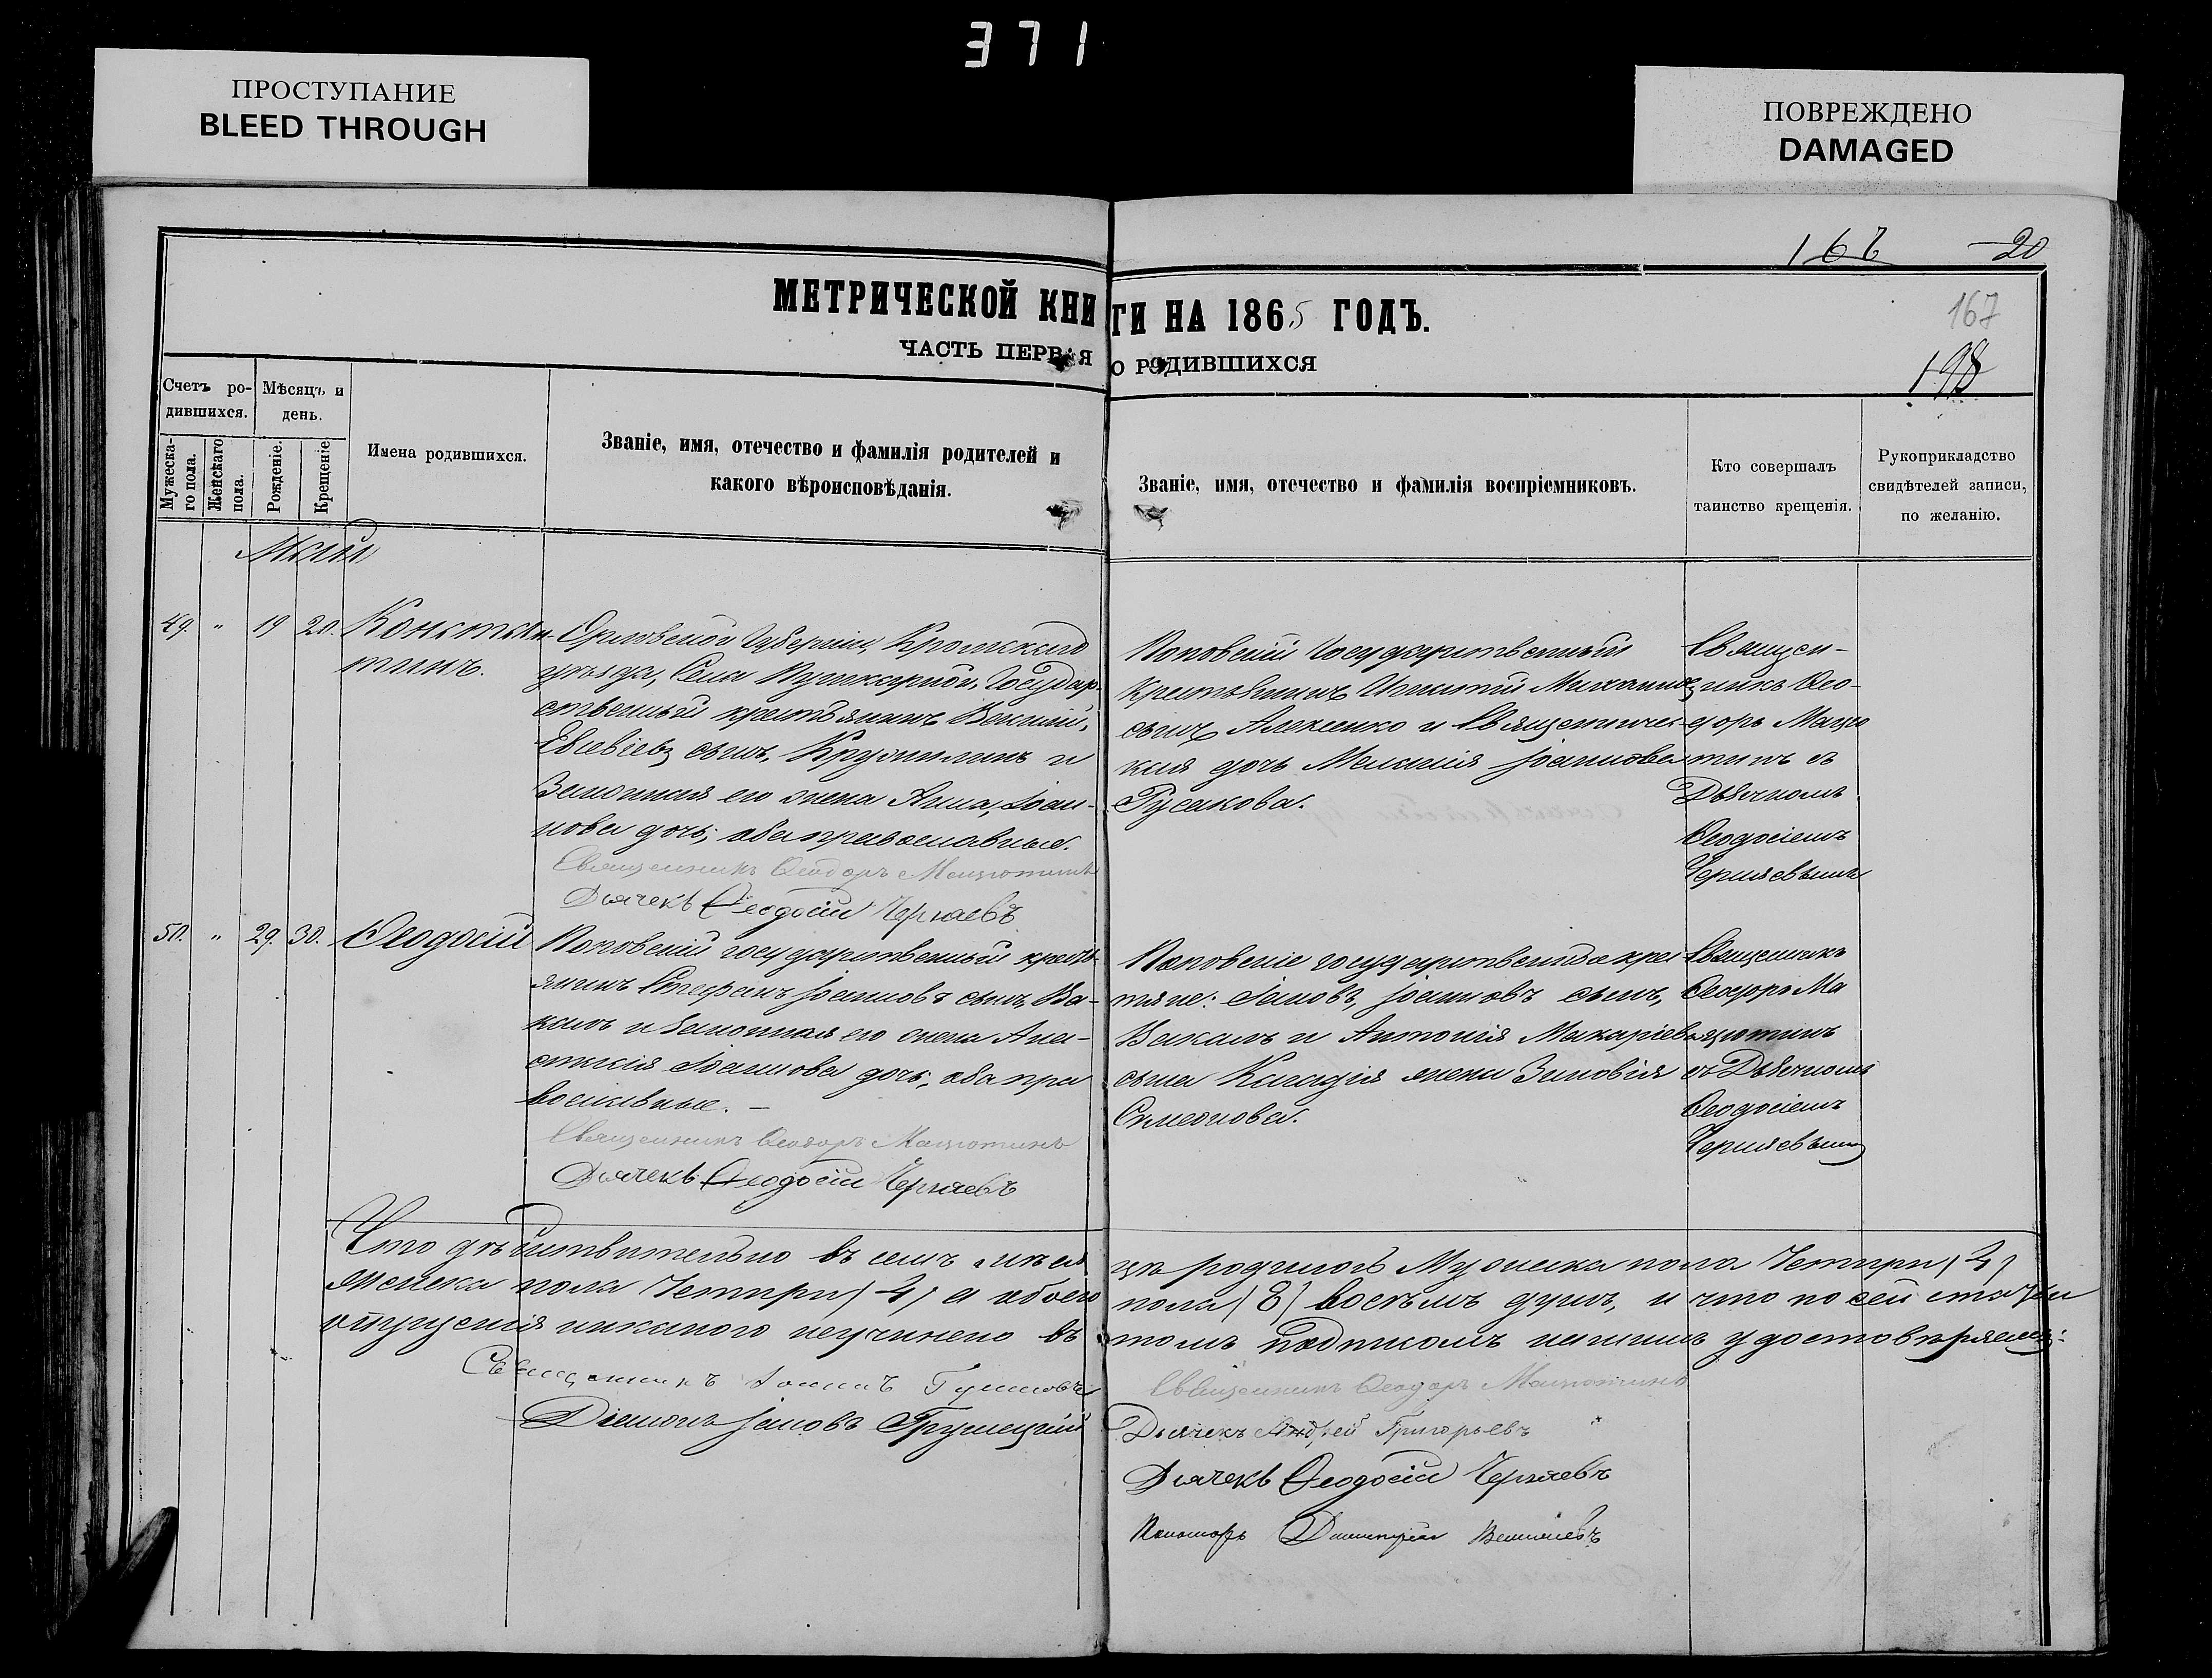 371
ПРОСТУПАНИЕ
BLEED THROUGH
ПОВРЕЖДЕНО
DAMAGED
166 20
167
198
МЕТРИЧЕСКОЙ КНИГИ НА 1865 ГОДЪ.
ЧАСТЬ ПЕРВАЯ О РОДИВШИХСЯ
Счетъ ро-
дившихся.
Мужеска-
го пола.
Женскаго
пола.
Мѣсяцъ и
день.
Рожденіе.
Крещеніе
Имена родившихся.
Званіе, имя, отечество и фамилія родителей и
какого вѣроисповѣданія.
Званіе, имя, отечество и фамилія воспріемниковъ.
Кто совершалъ
таинство крещенія.
Рукоприкладство
свидѣтелей записи,
по желанію.
Май
49. " 19 20. Констан-
тинъ.
Орловской Губерніи, Кромскаго
уѣзда, Села Пушкарной, Государ-
ственный крестьянинъ
Евсевіевъ сынъ, и
Законная его жена Анна, Іоан-
нова дочь; оба православные.
Священникъ Ѳеодоръ
Дьячекъ Ѳеодосій Черняевъ
Поповскій Государственный
крестьянинъ Игнатій Михаиловъ
сынъ Алексенко и Священничес-
кая дочь Меланія Іоаннова
Русакова.
Священ-
никъ Ѳео-
доръ
съ
Дьячкомъ
Ѳеодосіемъ
Черняевымъ
50. " 29. 30. Ѳеодосій
Поповскій государственный кресть-
янинъ Стефанъ Іоанновъ сынъ, Ва-
калъ и Законная его жена Ана-
стасія Іоаннова дочь; оба пра
вославные. —
Священникъ Ѳеодоръ
Дьячекъ Ѳеодосій Черняевъ
Поповскіе государственные крес
тяне: Іаковъ, Іоанновъ сынъ,
Вакалъ и Антонія Макаріева
сына жена Зиновія
Симеонова.
Священникъ
Ѳеодоръ
съ Дьячкомъ
Ѳеодосіемъ
Черняевымъ
Что дѣйствительно въ семъ мѣсяцѣ родилось Мужеска пола Четыри (4)
Женска пола Четыри (4) а обоего пола (8) восемъ душъ, и что по сей статьи
опущенія никакого неучинено въ томъ подписомъ нашимъ удостовѣряемъ:
Священникъ Іоаннъ
Діаконъ Іаковъ Грушецкій
Священникъ Ѳеодоръ
Дьячекъ Андрей Григорьевъ
Дьячекъ Ѳеодосій Черняевъ
Пономарь Димитрій